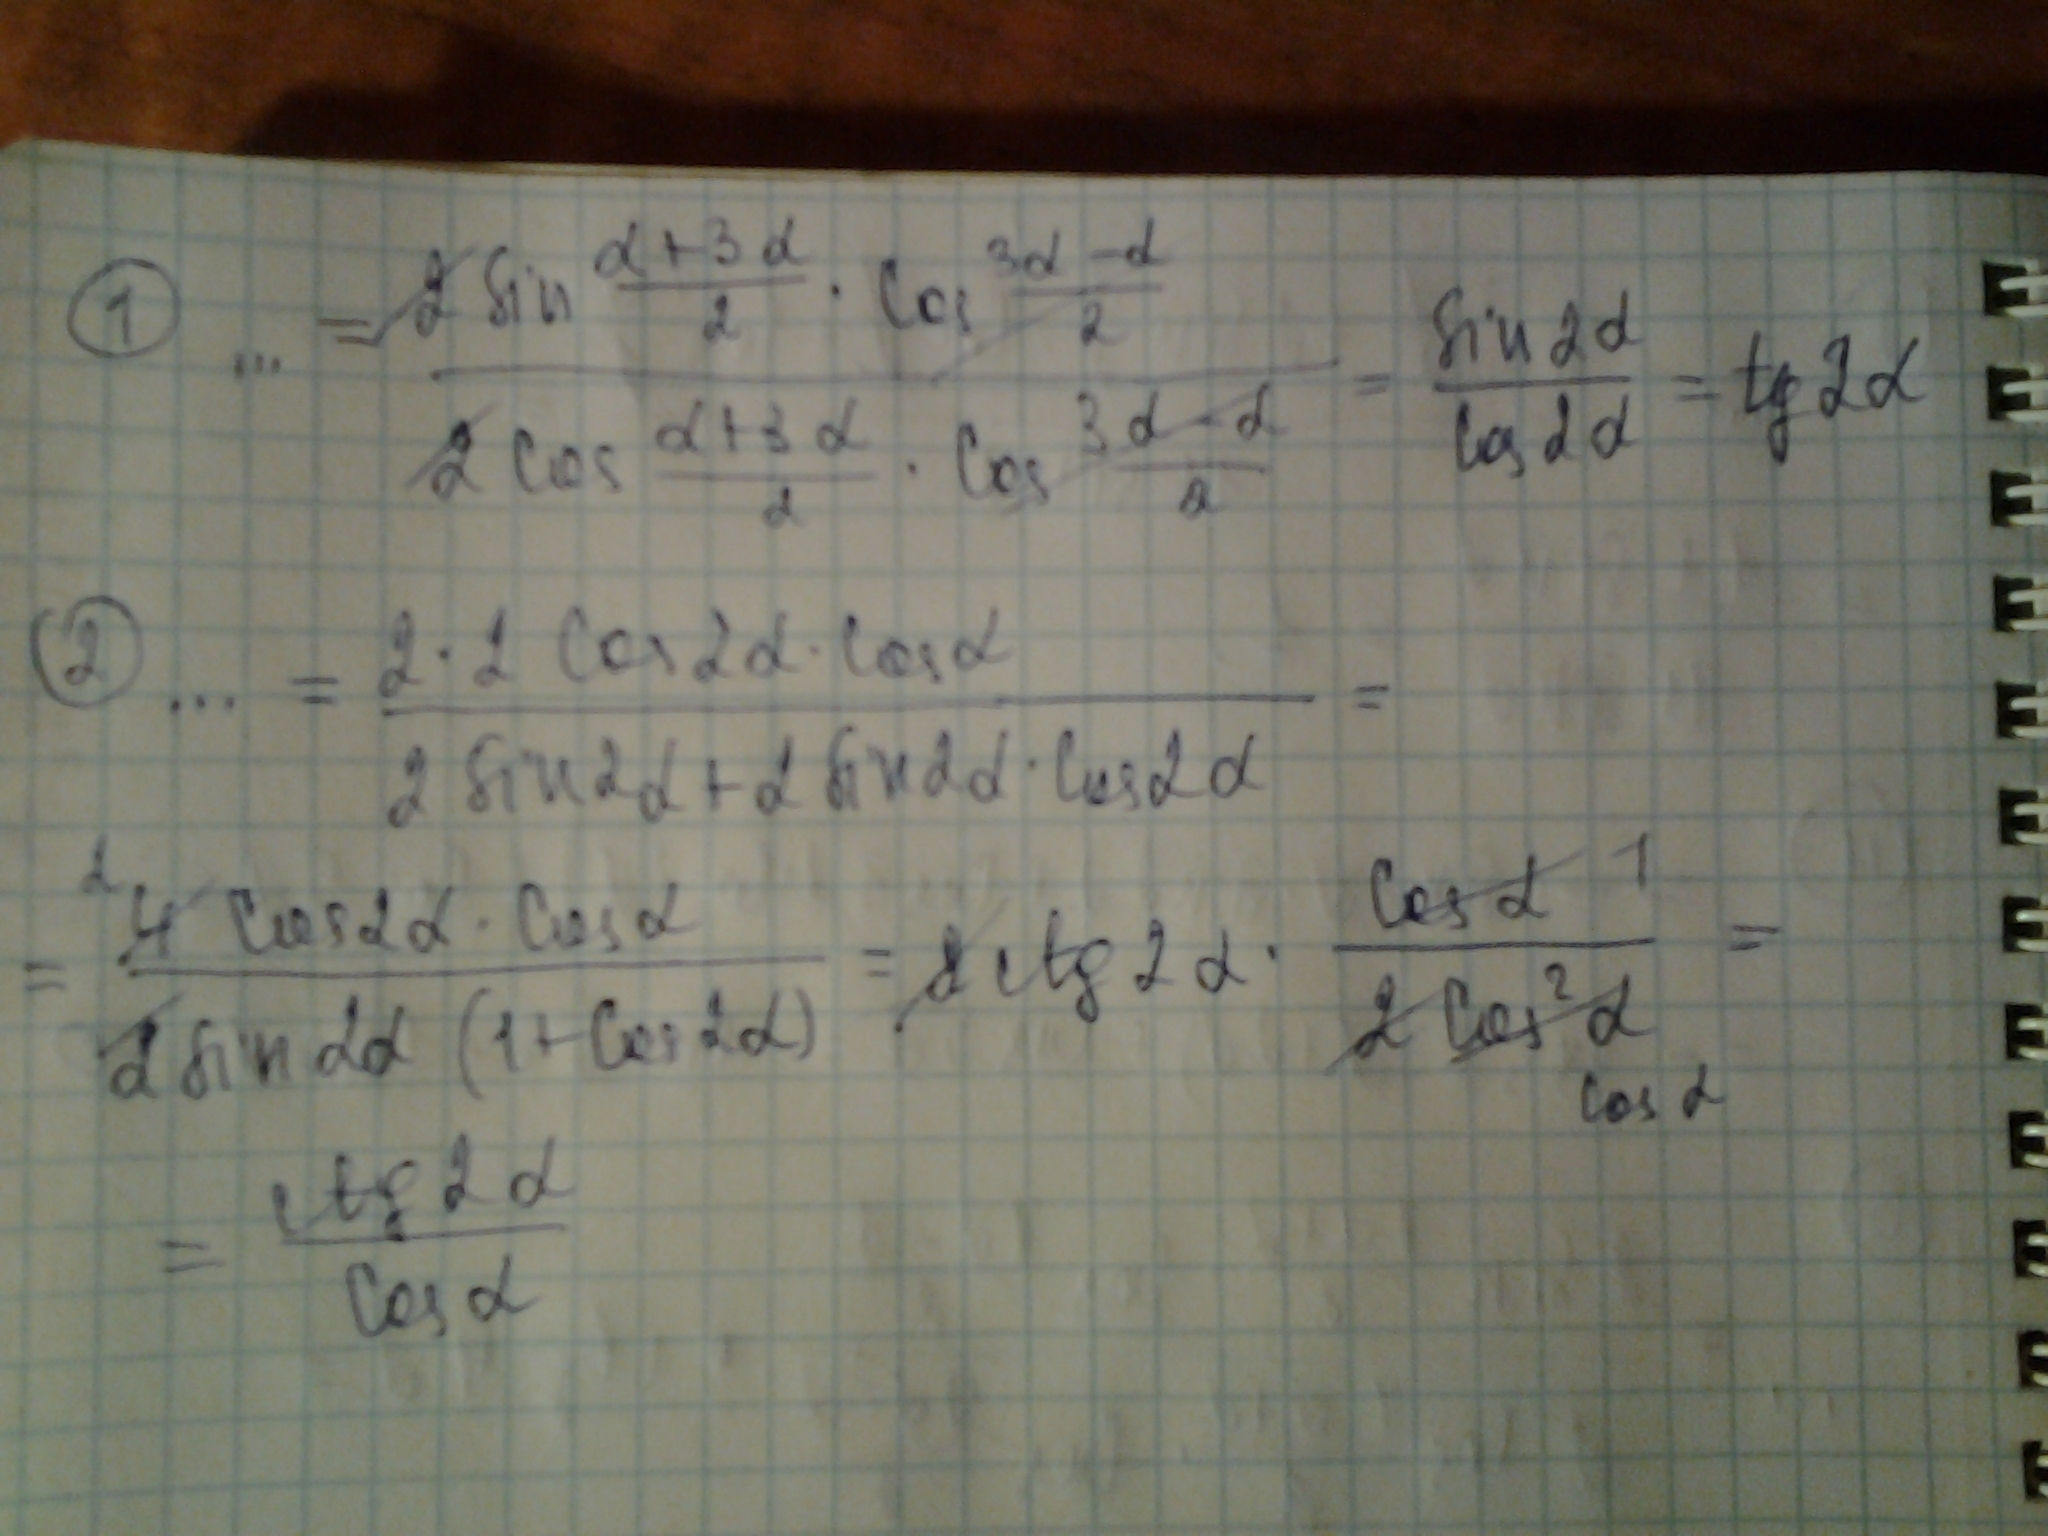 ① ... = (2 sin (α+3α)/2 · cos (3α-α)/2) / (2 cos (α+3α)/2 · cos (3α-α)/2) = sin 2α / cos 2α = tg 2α
② ... = (2·2 cos 2α · cos α) / (2 sin 2α + 2 sin 2α · cos 2α) =
= (4 2 cos 2α · cos α) / (2 sin 2α (1+cos 2α)) = 2 ctg 2α · (cos α 1) / (2 cos² α cos α) =
= ctg 2α / cos α